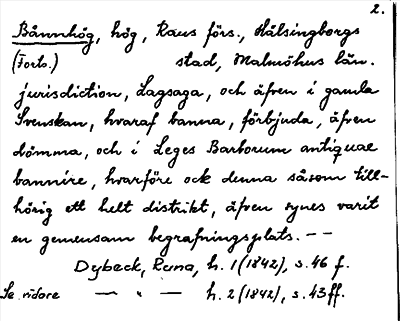 2.
Bånnhög, hög, Raus förs., Hälsingborgs
(Forts.) stad, Malmöhus län.
jurisdiction, Lagsaga, och äfven i gamla
Svenskan, hvaraf banna, förbjuda, äfven
dömma, och i Leges Barborum antiquae
bannire, hvarföre ock denna såsom till-
hörig ett helt distrikt, äfven synes varit
en gemensam begrafningsplats. --
Dybeck, Runa, h. 1 (1842), s. 46 f.
Se vidare — " — h. 2 (1842), s. 43 ff.